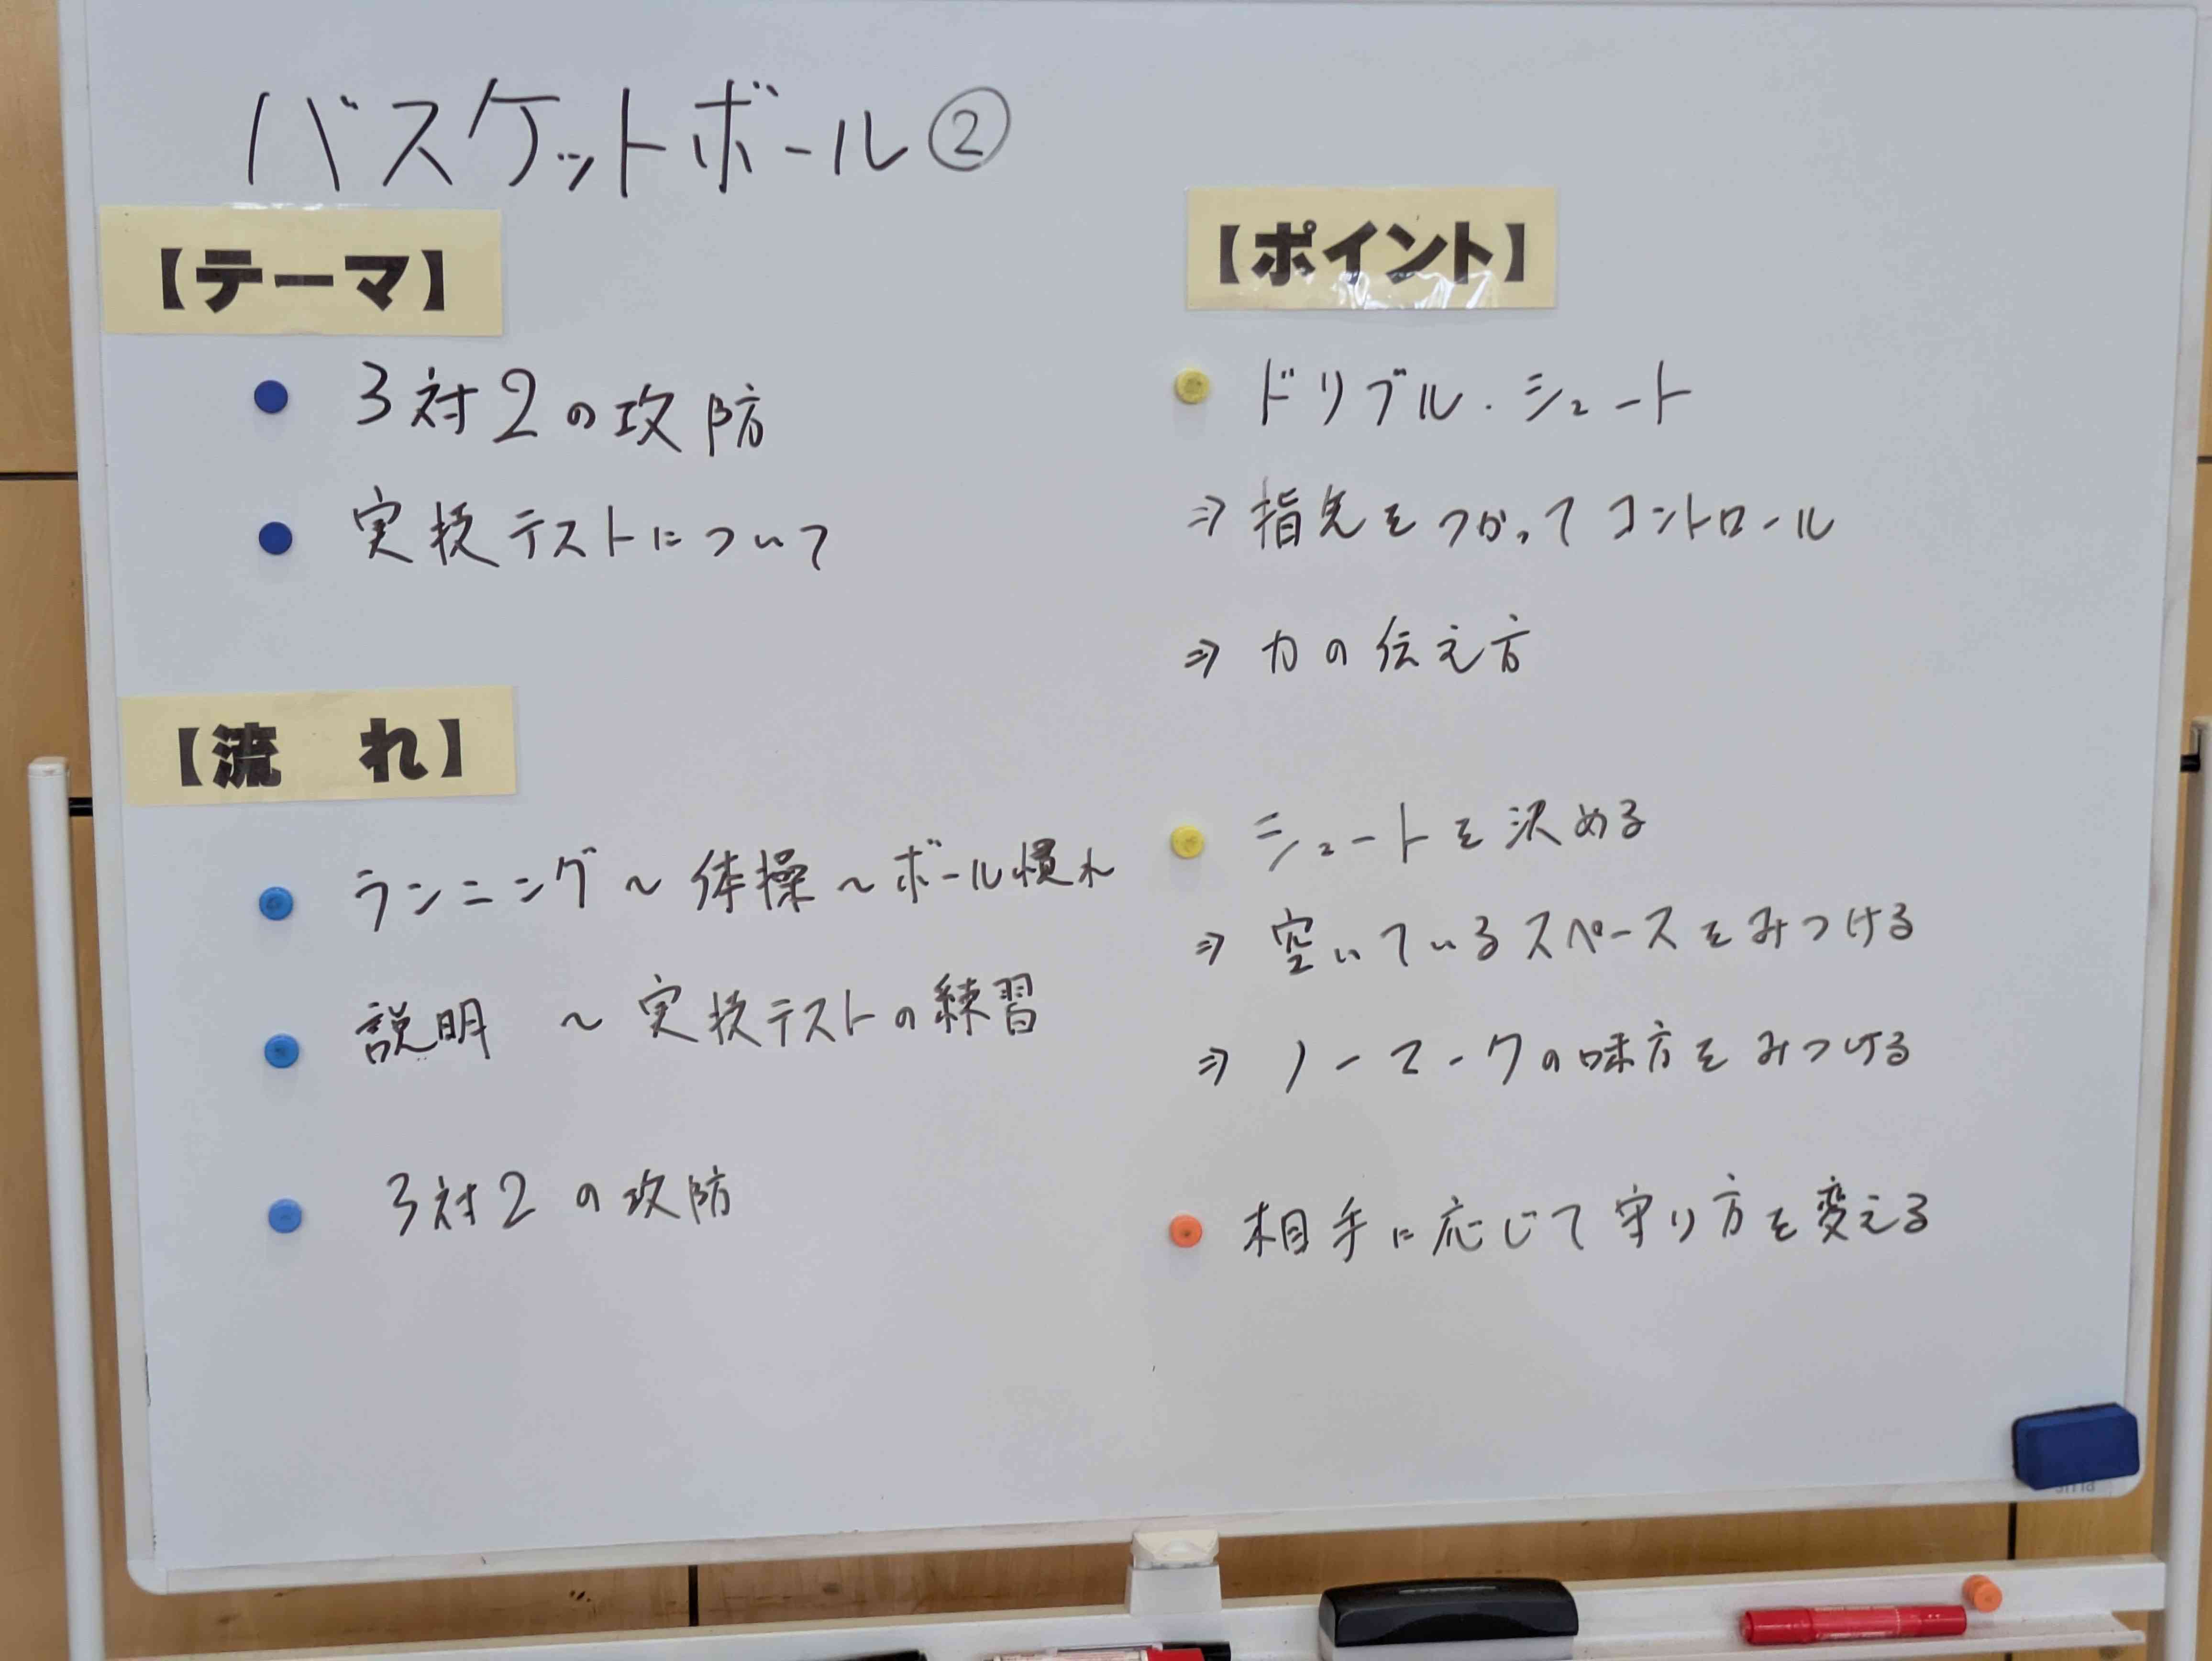 バスケットボール②
【テーマ】
3対2の攻防
実技テストについて
【流 れ】
ランニング～体操～ボール慣れ
説明 ～実技テストの練習
3対2の攻防
【ポイント】
ドリブル・シュート
⇒指先をつかってコントロール
⇒力の伝え方
シュートを決める
⇒空いているスペースをみつける
⇒ノーマークの味方をみつける
相手に応じて守り方を変える